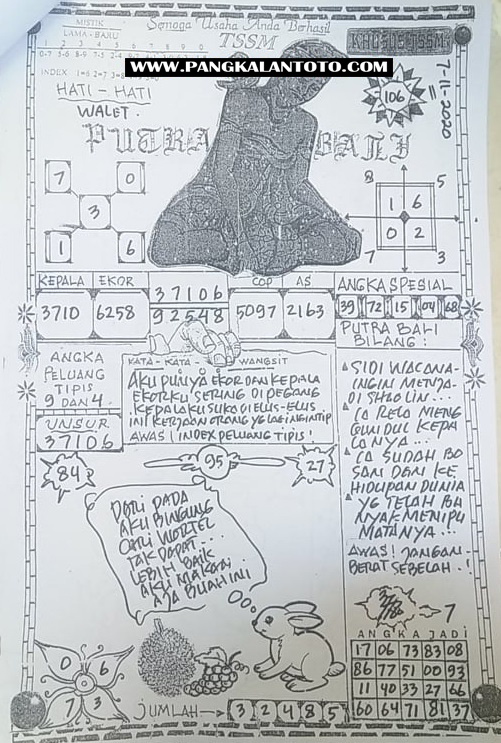 MISTIK
LAMA - BARU
Semoga Usaha Anda Berhasil
TSSM
KHUSUS TSSM
1 2 3 4 5 6 7 8 9 0
WWW.PANGKALANTOTO.COM
INDEX
HATI - HATI
WALET.
106
7-11-2020
PUTRA BALI
7 0
3
1 6
8 5
1 6
0 2
7 3
KEPALA EKOR
3710 6258
37106
92548
COP AS
5097 2163
ANGKA SPESIAL
39 72 15 04 68
PUTRA BALI
BILANG :
ANGKA
PELUANG
TIPIS
9 DAN 4.
UNSUR
37106
KATA - KATA WANGSIT
AKU PUNYA EKOR DAN KEPALA
EKORKU SERING DI PEGANG
KEPALAKU SUKA DI ELUS-ELUS
INI KERJAAN ORANG YG LAGI NGINTIP
AWAS! INDEX PELUANG TIPIS!
SIDI WACANA
INGIN MENJA-
DI SHAOLIN...
IA RELA MENG
GUNDUL KEPA
LANYA...
IA SUDAH BO
SAN DAN KE
HIDUPAN DUNIA
YG TELAH BA
NYAK MENIPU
MATANYA...
AWAS! JANGAN
BERAT SEBELAH..!
84
95
27
DARI PADA
AKU BINGUNG
CARI WORTEL
TAK DAPAT...
LEBIH BAIK
AKU MAKAN
AJA BUAH INI
7
ANGKA JADI
17 06 73 83 08
86 77 51 00 93
11 40 33 27 66
60 64 71 81 37
0 6
7 3
JUMLAH → 3 2 4 8 5